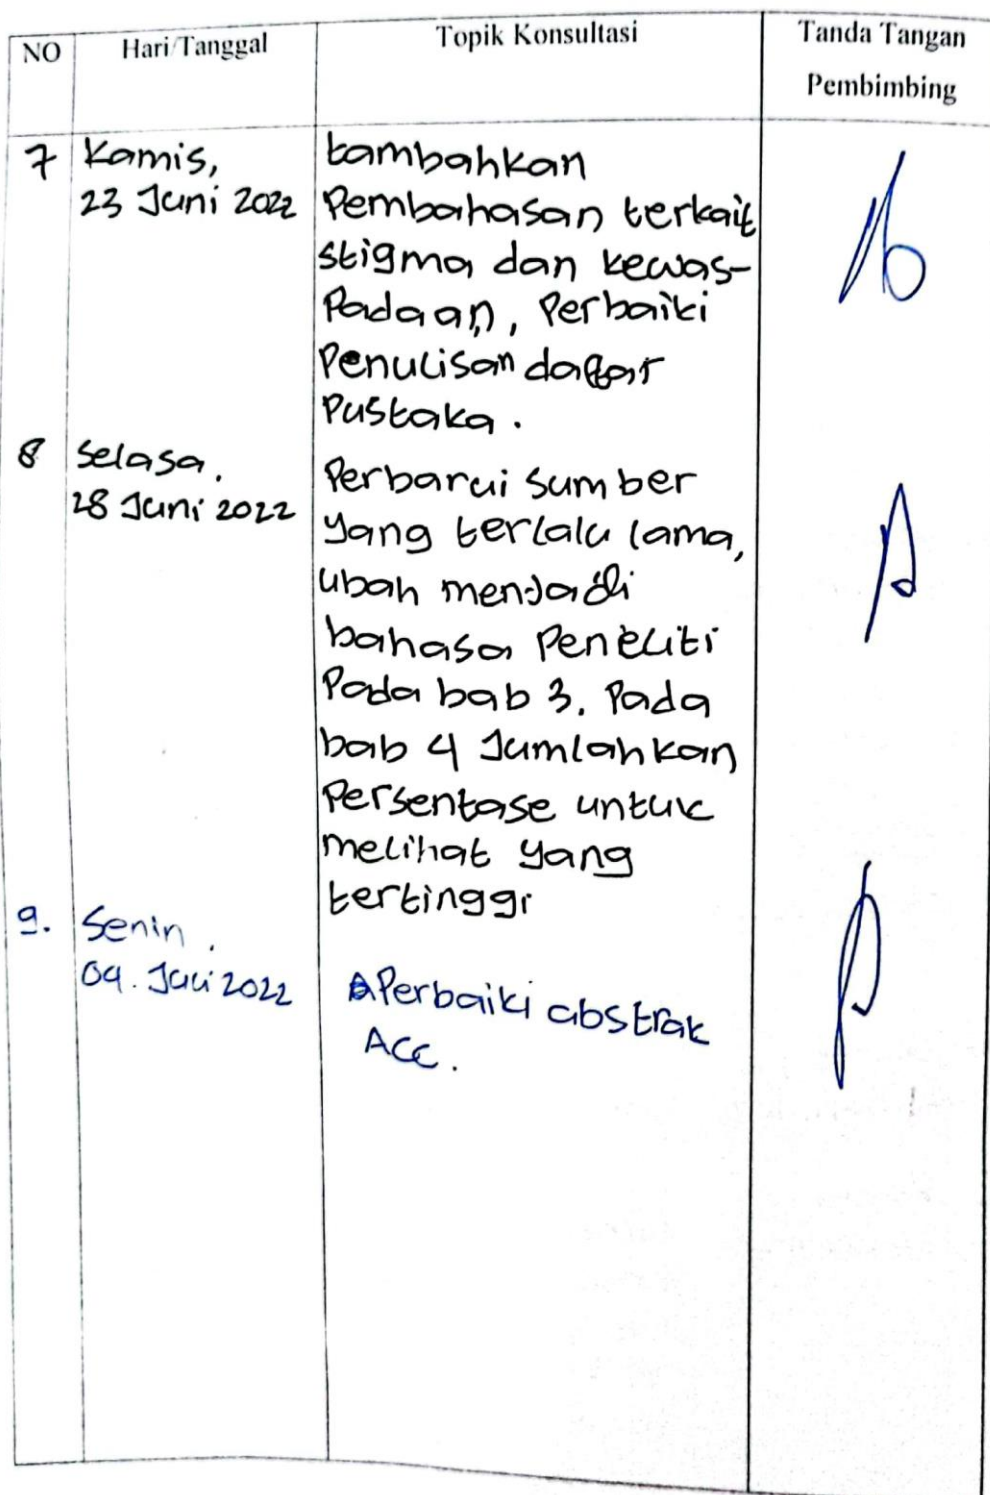 NO Hari/Tanggal Topik Konsultasi Tanda Tangan
Pembimbing
7 Kamis, tambahkan
23 Juni 2022 Pembahasan terkait
stigma dan kewas-
Padaan, Perbaiki
Penulisan daftar
Pustaka.
8 Selasa, Perbarui Sumber
28 Juni 2022 yang terlalu lama,
ubah menjadi
bahasa Peneliti
Pada bab 3. Pada
bab 4 Jumlahkan
Persentase untuk
melihat yang
tertinggi
9. Senin, Perbaiki abstrak
04. Juli 2022 Acc.